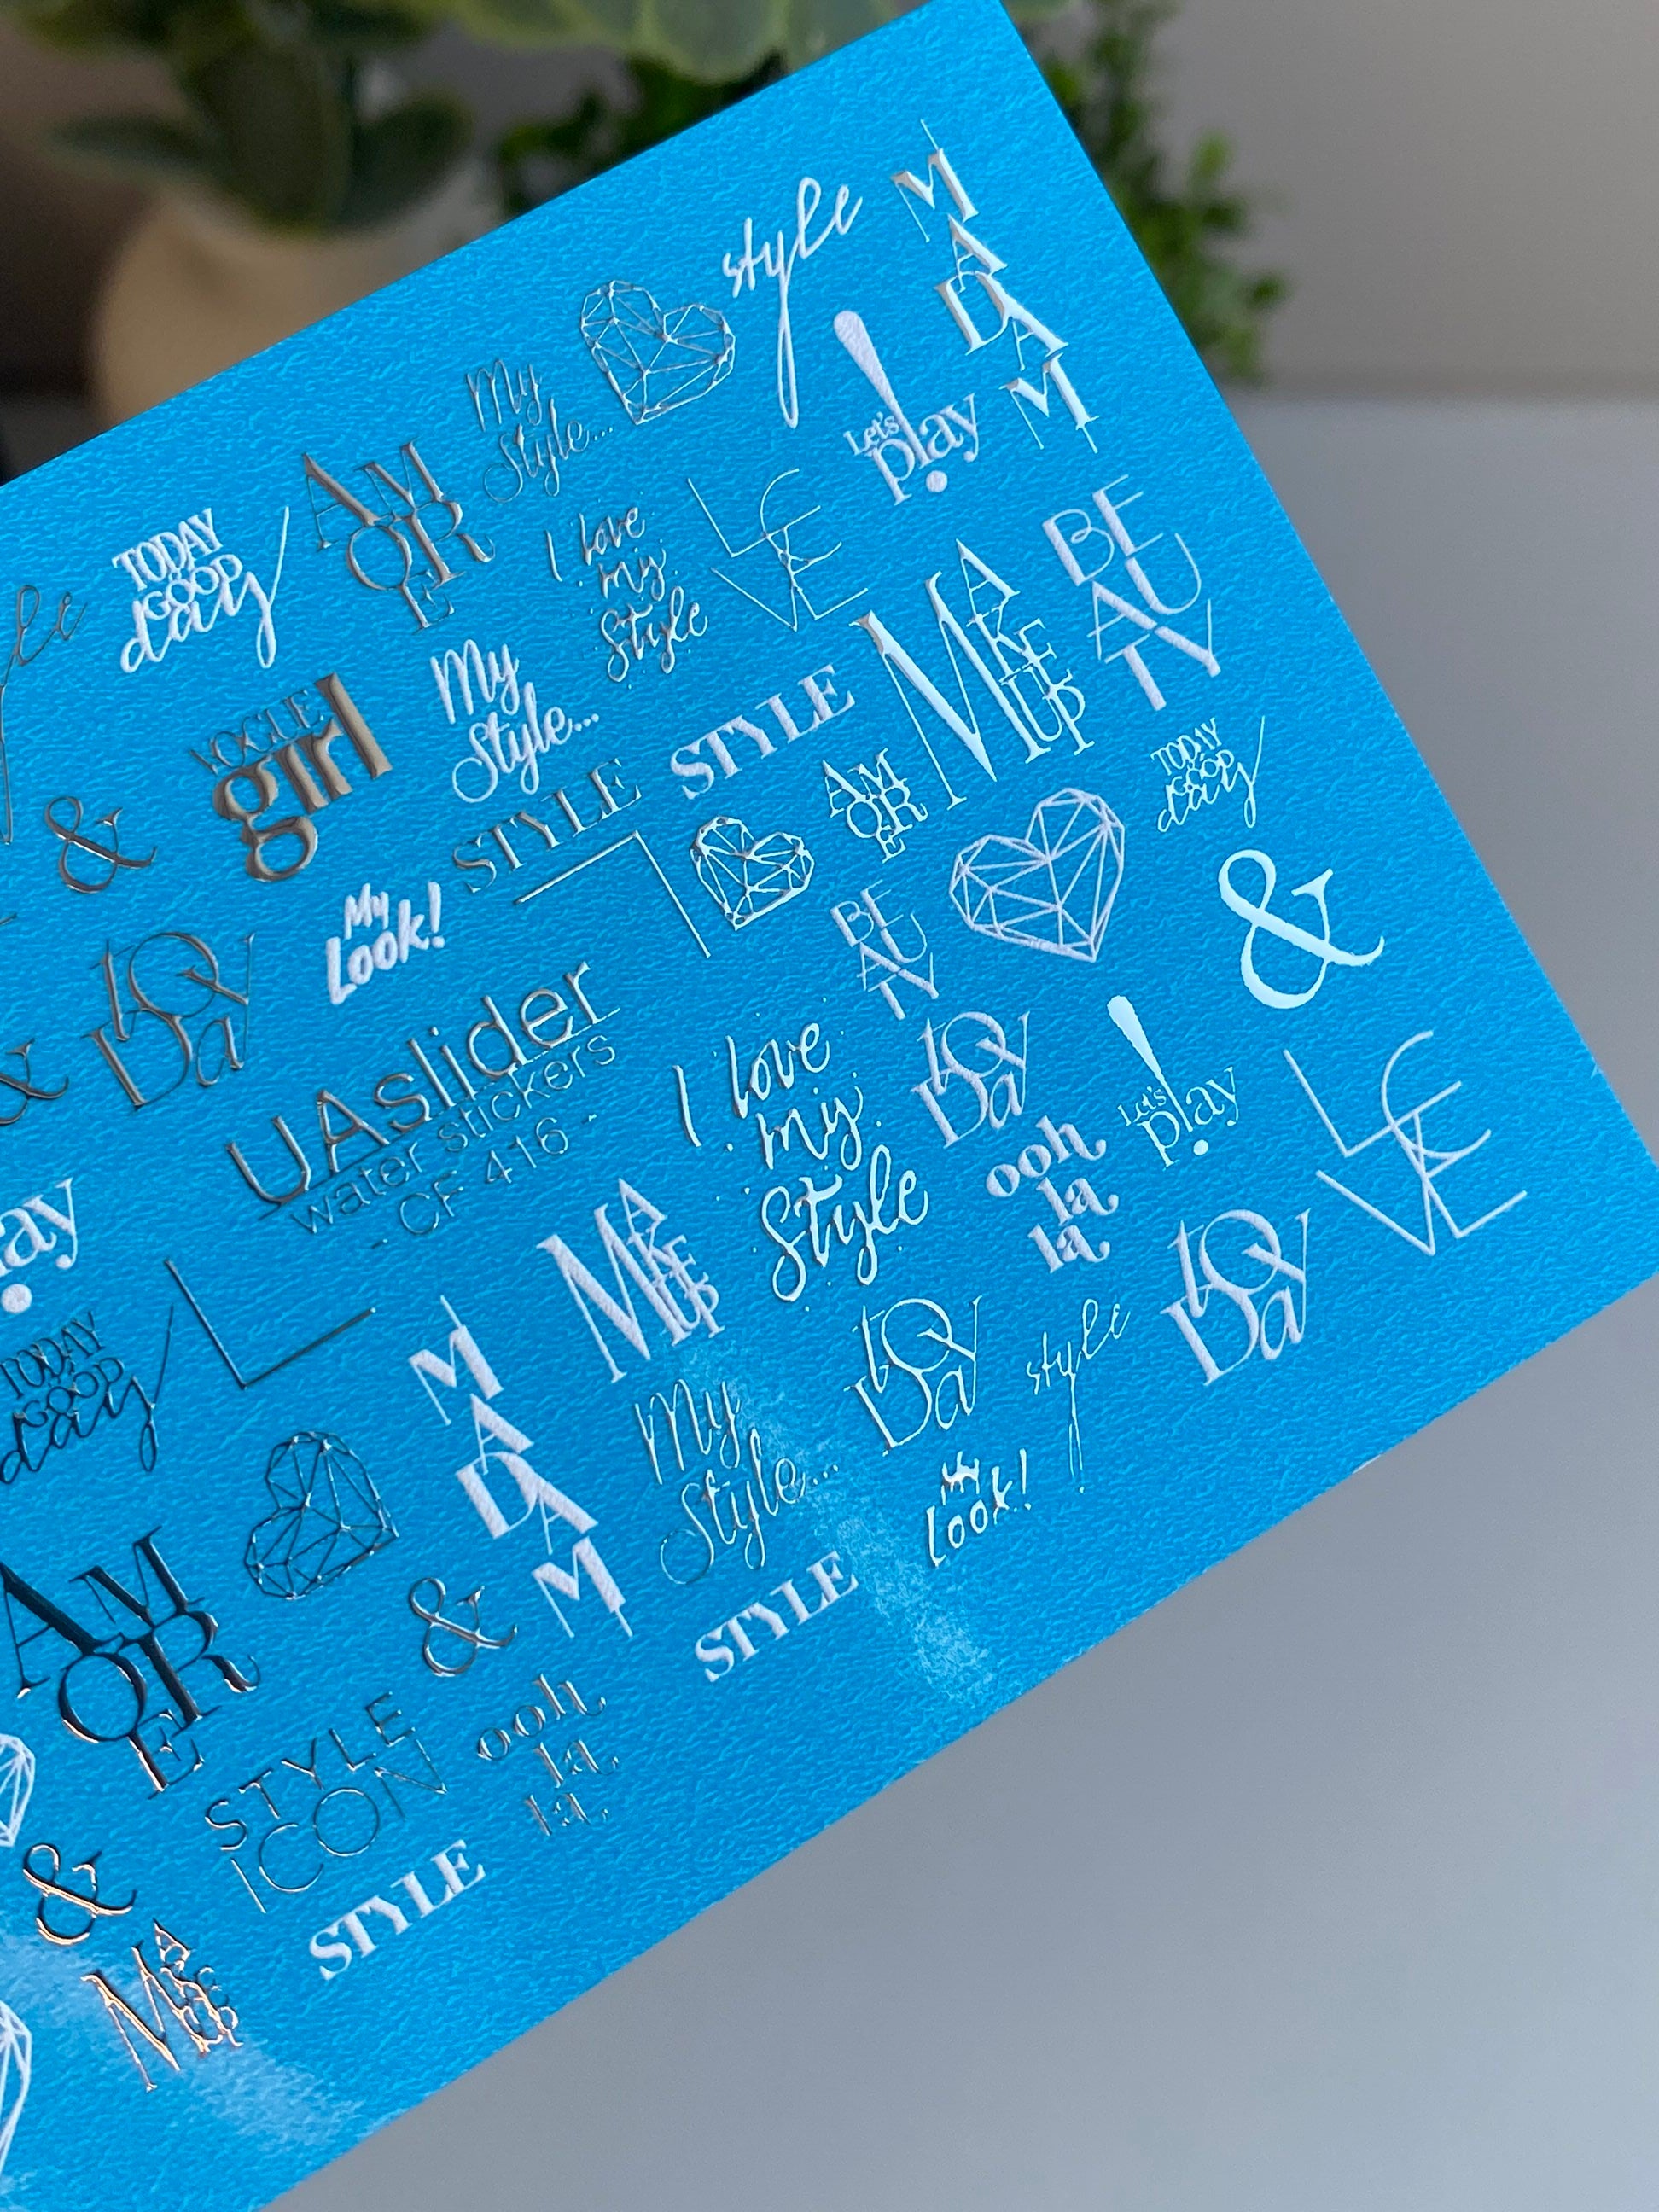 style
MADAM
My
Style...
Let's
play
AMORE
TODAY
GOOD
day
I love
my
Style
LOVE
BEAUTY
MAKE
UP
My
Style...
VOGUE
girl
STYLE
STYLE
AMORE
TODAY
GOOD
day
&
My
Look!
BEAUTY
&
toDay
UAslider
water stickers
- CF 416 -
I love
my
Style
toDay
Let's
play
LOVE
&
ooh
la
la
play
MAKE
UP
toDay
TODAY
GOOD
day
MADAM
My
Style...
toDay
style
My
Look!
AMORE
&
STYLE
STYLE
ICON
ooh
la
la
&
STYLE
MAKE
UP